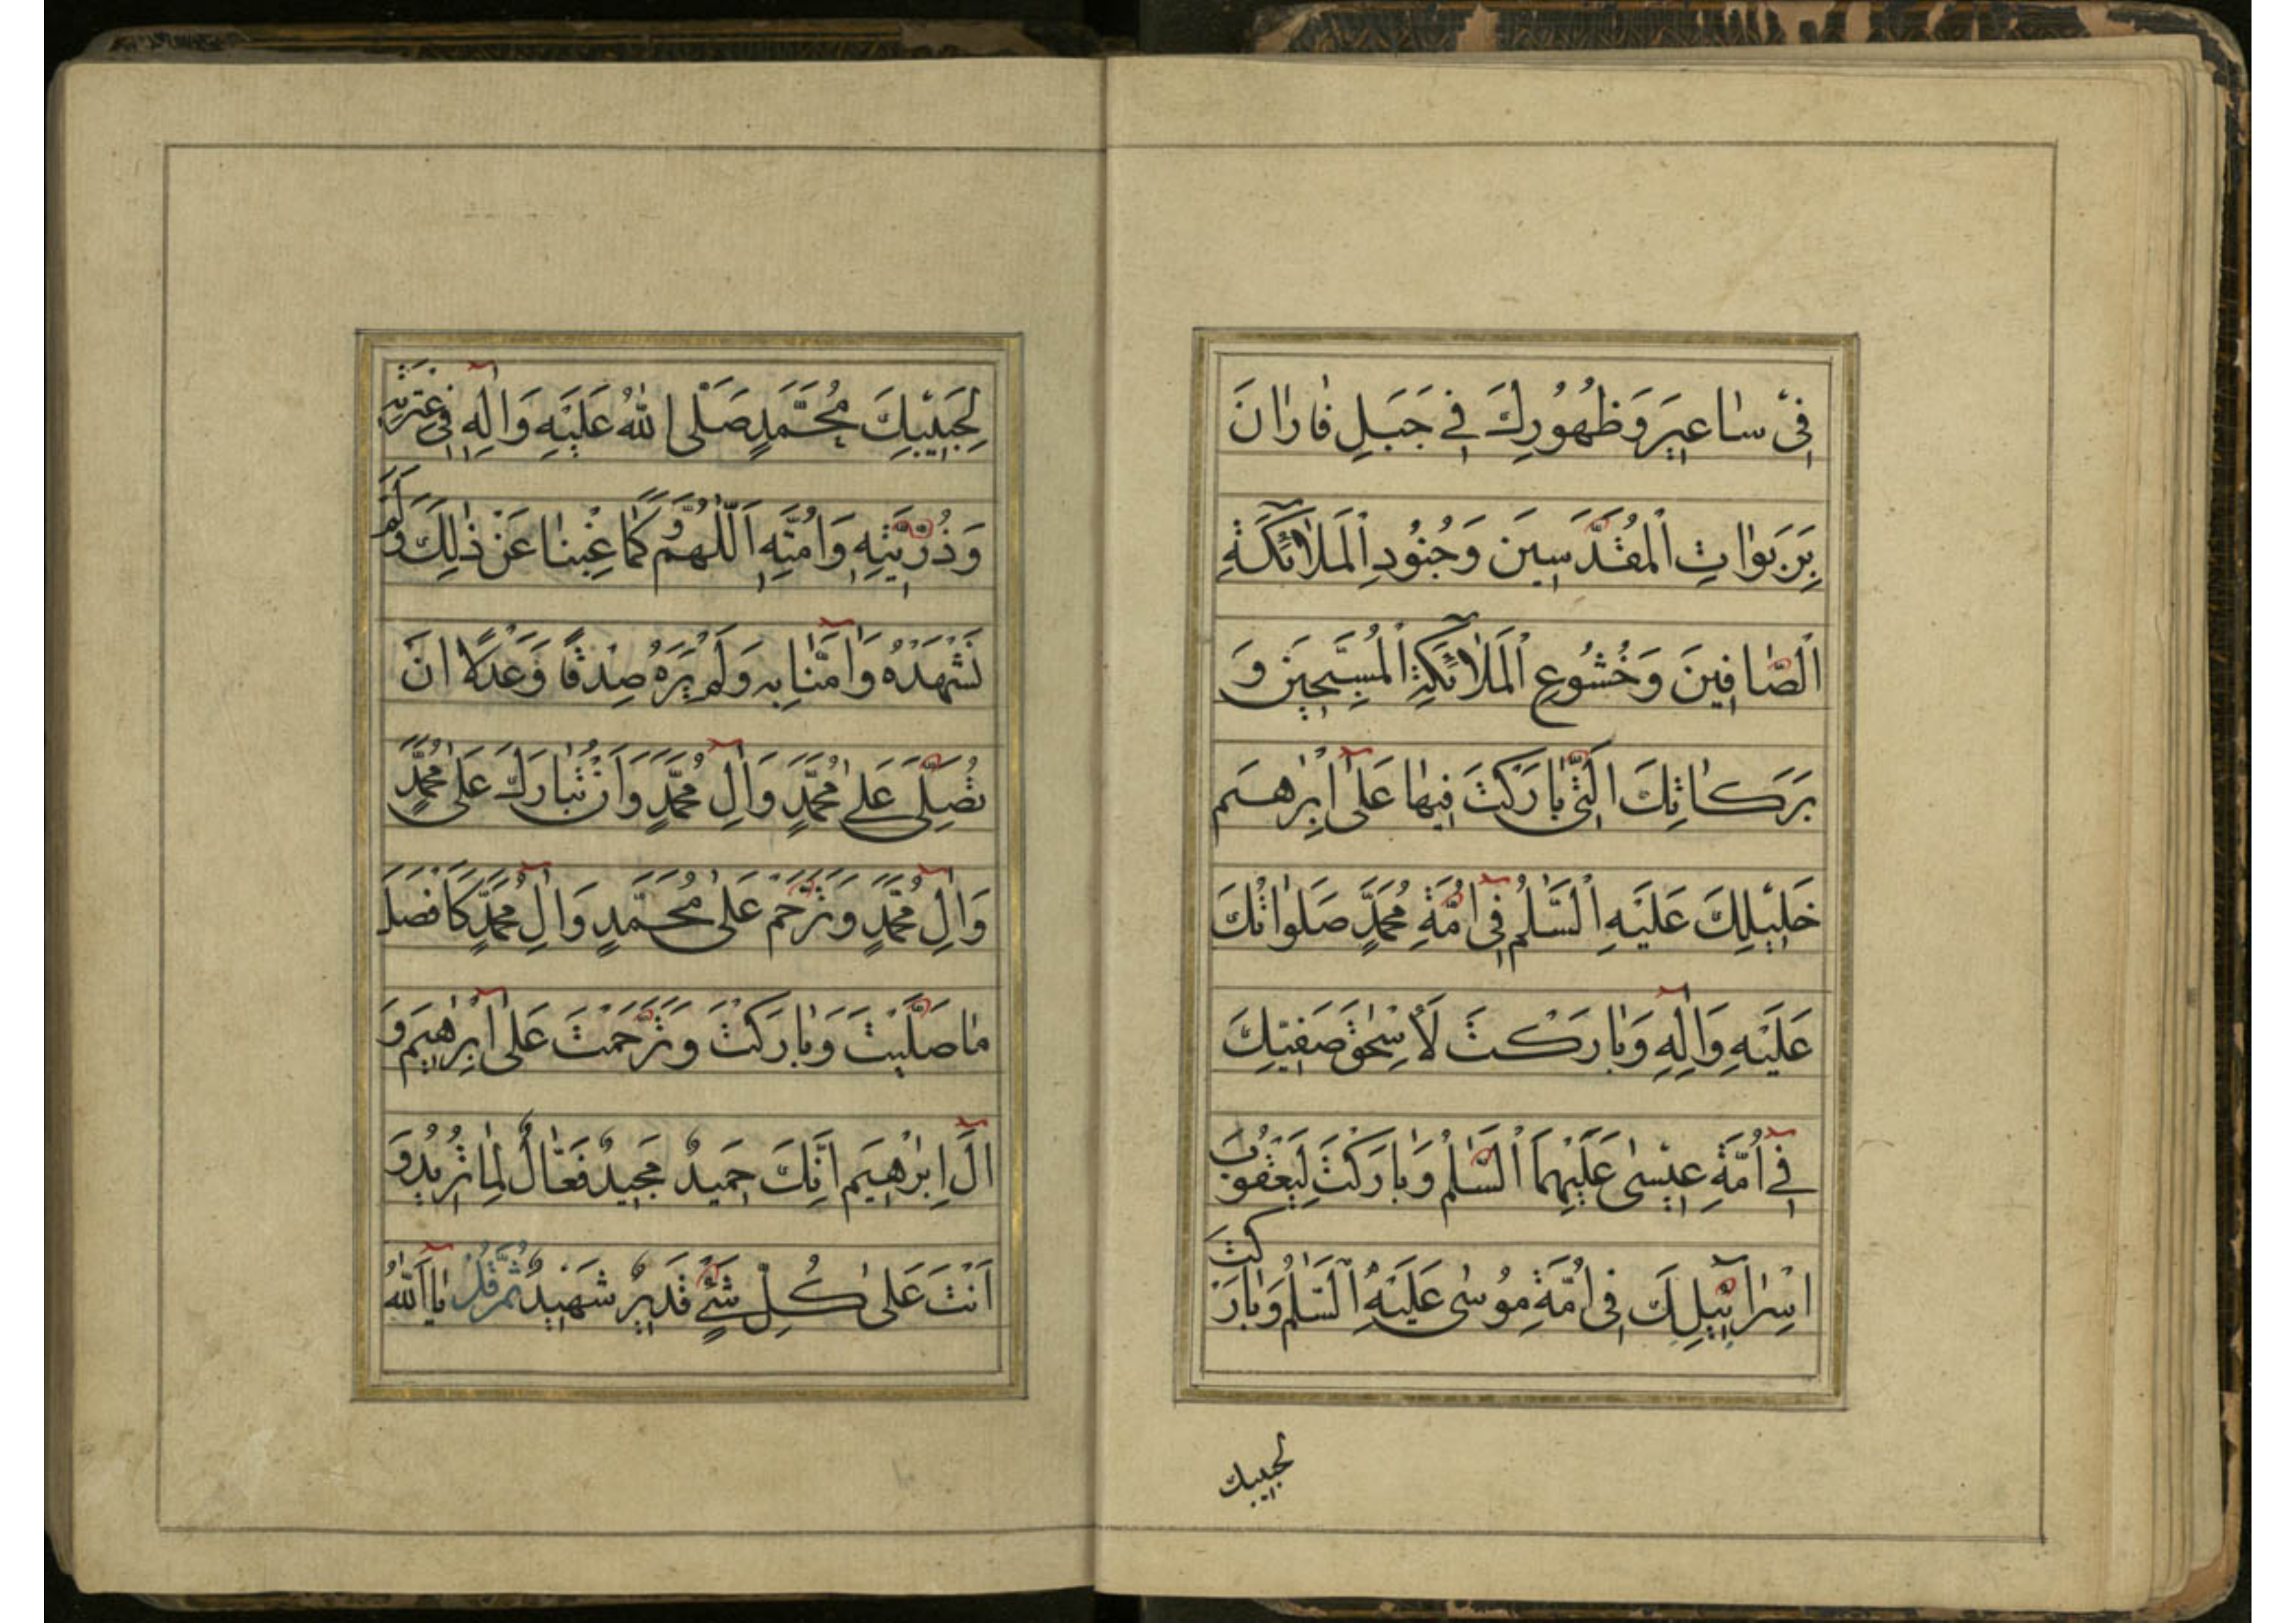 فِي سٰاعِيرَ وَظُهُورِكَ فِي جَبَلِ فٰارٰانَ
بِرَبَوٰاتِ الْمُقَدَّسِينَ وَجُنُودِ الْمَلٰائِكَةِ
الصّٰافِينَ وَخُشُوعِ الْمَلٰائِكَةِ الْمُسَبِّحِينَ وَ
بَرَكٰاتِكَ الَّتِي بٰارَكْتَ فِيهٰا عَلٰى اِبْرٰهِيمَ
خَلِيلِكَ عَلَيْهِ السَّلٰمُ فِي اُمَّةِ مُحَمَّدٍ صَلَوٰاتُكَ
عَلَيْهِ وَاٰلِهِ وَبٰارَكْتَ لِاِسْحٰقَ صَفِيِّكَ
فِي اُمَّةِ عِيسٰى عَلَيْهِمَا السَّلٰمُ وَبٰارَكْتَ لِيَعْقُوبَ
اِسْرٰائِيلِكَ فِي اُمَّةِ مُوسٰى عَلَيْهِ السَّلٰمُ وَبٰارَكْتَ
لحبيبك
لِحَبِيبِكَ مُحَمَّدٍ صَلَّى اللّٰهُ عَلَيْهِ وَاٰلِهِ فِي عِتْرَتِهِ
وَذُرِّيَّتِهِ وَاُمَّتِهِ اَللّٰهُمَّ وَكَمٰا غِبْنٰا عَنْ ذٰلِكَ وَلَمْ
نَشْهَدْهُ وَاٰمَنّٰا بِهِ وَلَمْ نَرَهُ صِدْقًا وَعَدْلًا اَنْ
تُصَلِّيَ عَلٰى مُحَمَّدٍ وَاٰلِ مُحَمَّدٍ وَاَنْ تُبٰارِكَ عَلٰى مُحَمَّدٍ
وَاٰلِ مُحَمَّدٍ وَتَرَحَّمَ عَلٰى مُحَمَّدٍ وَاٰلِ مُحَمَّدٍ كَاَفْضَلِ
مٰا صَلَّيْتَ وَبٰارَكْتَ وَتَرَحَّمْتَ عَلٰى اِبْرٰهِيمَ وَ
اٰلِ اِبْرٰهِيمَ اِنَّكَ حَمِيدٌ مَجِيدٌ فَعّٰالٌ لِمٰا تُرِيدُ وَ
اَنْتَ عَلٰى كُلِّ شَيْءٍ قَدِيرٌ شَهِيدٌ ثُمَّ قُلْ يٰا اَللّٰهُ